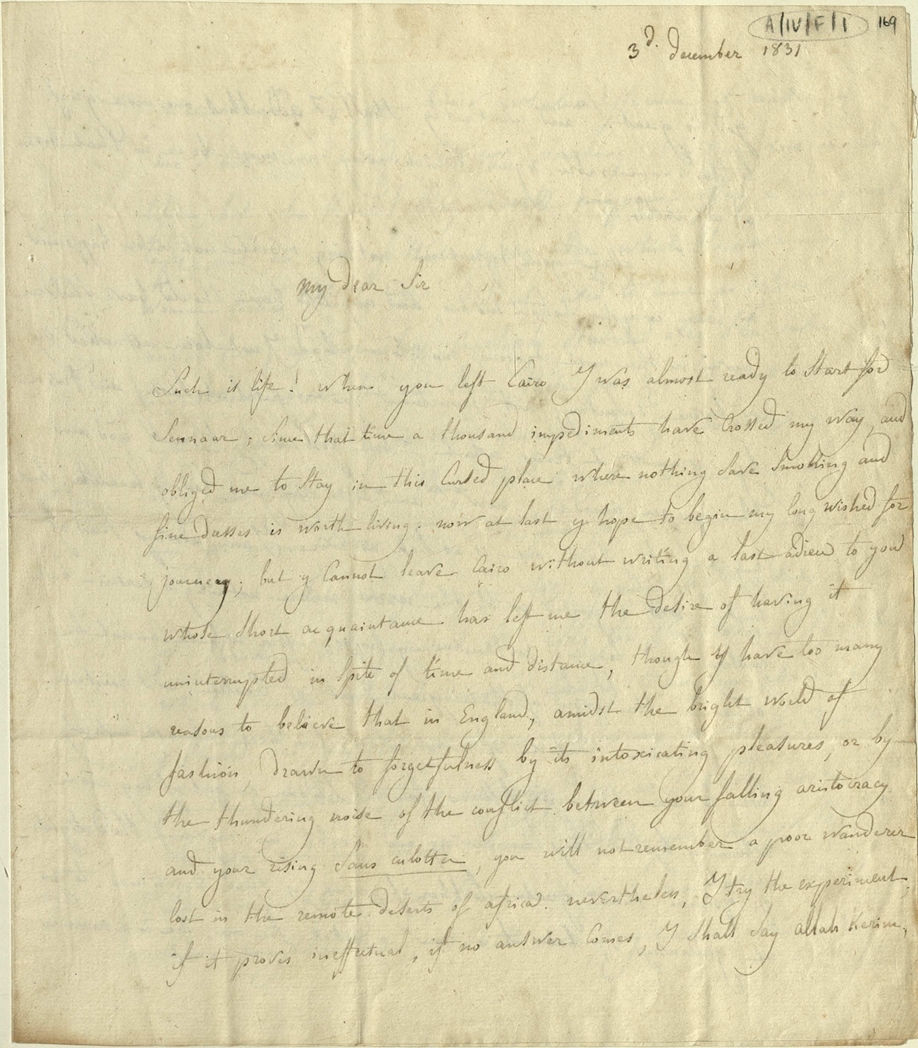 A/IV/F/1 169
3d. december 1831
My dear Sir
Such is life! when you left Cairo I was almost ready to start for
Sennaar; since that time a thousand impediments have crossed my way, and
obliged me to stay in this cursed place where nothing save smoking and
fine dresses is worth living. now at last y hope to begin my long wished for
journey; but y cannot leave Cairo without writing a last adieu to you
whose short acquaintance has left me the desire of having it
uninterrupted in spite of time and distance, though y have too many
reasons to believe that in England, amidst the bright world of
fashion, drawn to forgetfulness by its intoxicating pleasures, or by
the thundering noise of the conflict between your falling aristocracy
and your rising Sans culotte, you will not remember a poor wanderer
lost in the remote deserts of africa. nevertheless, I try the experiment.
if it proves ineffectual, if no answer comes, I shall say allah kerim,